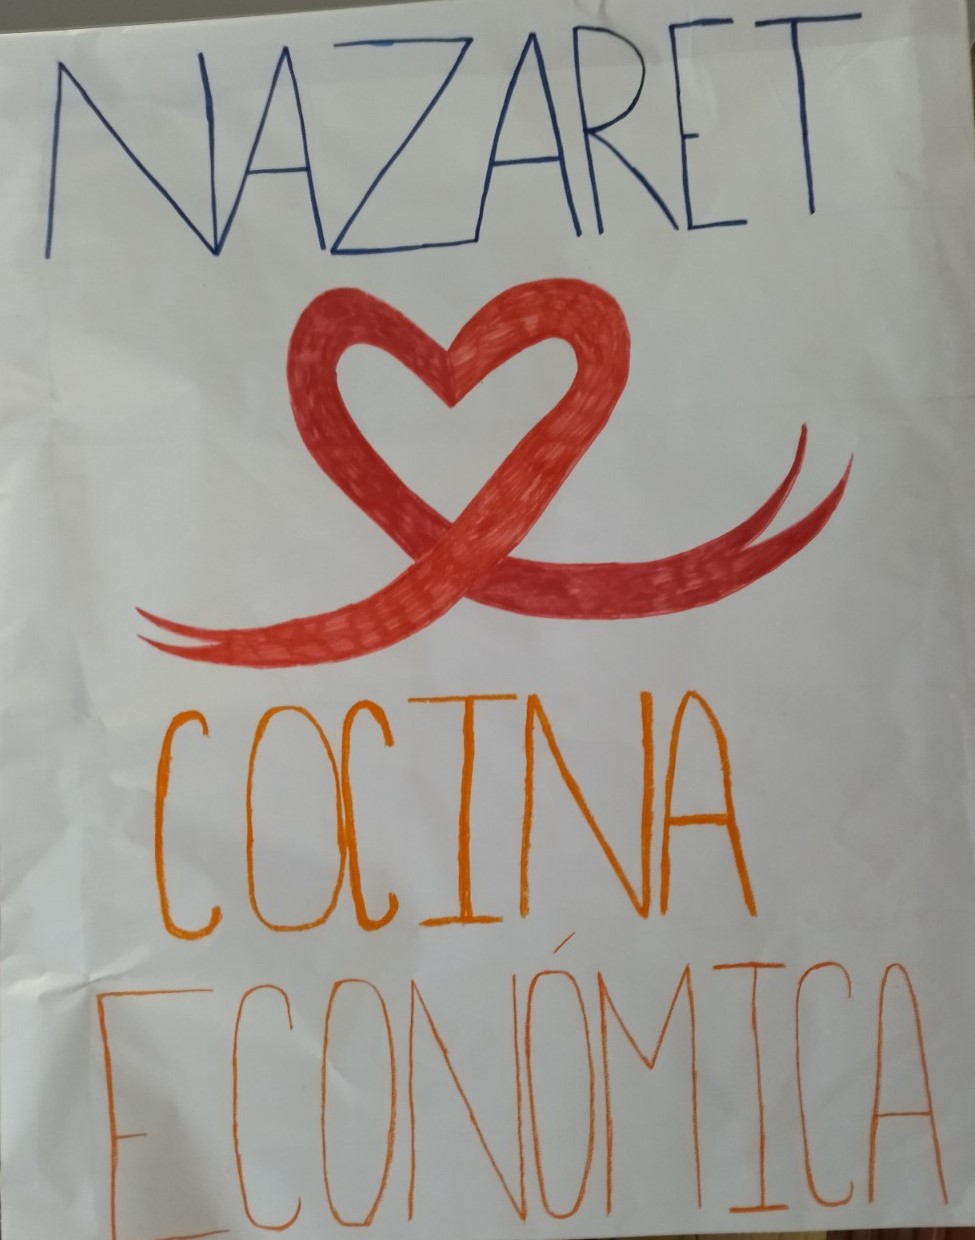 NAZARET
COCINA
ECONÓMICA